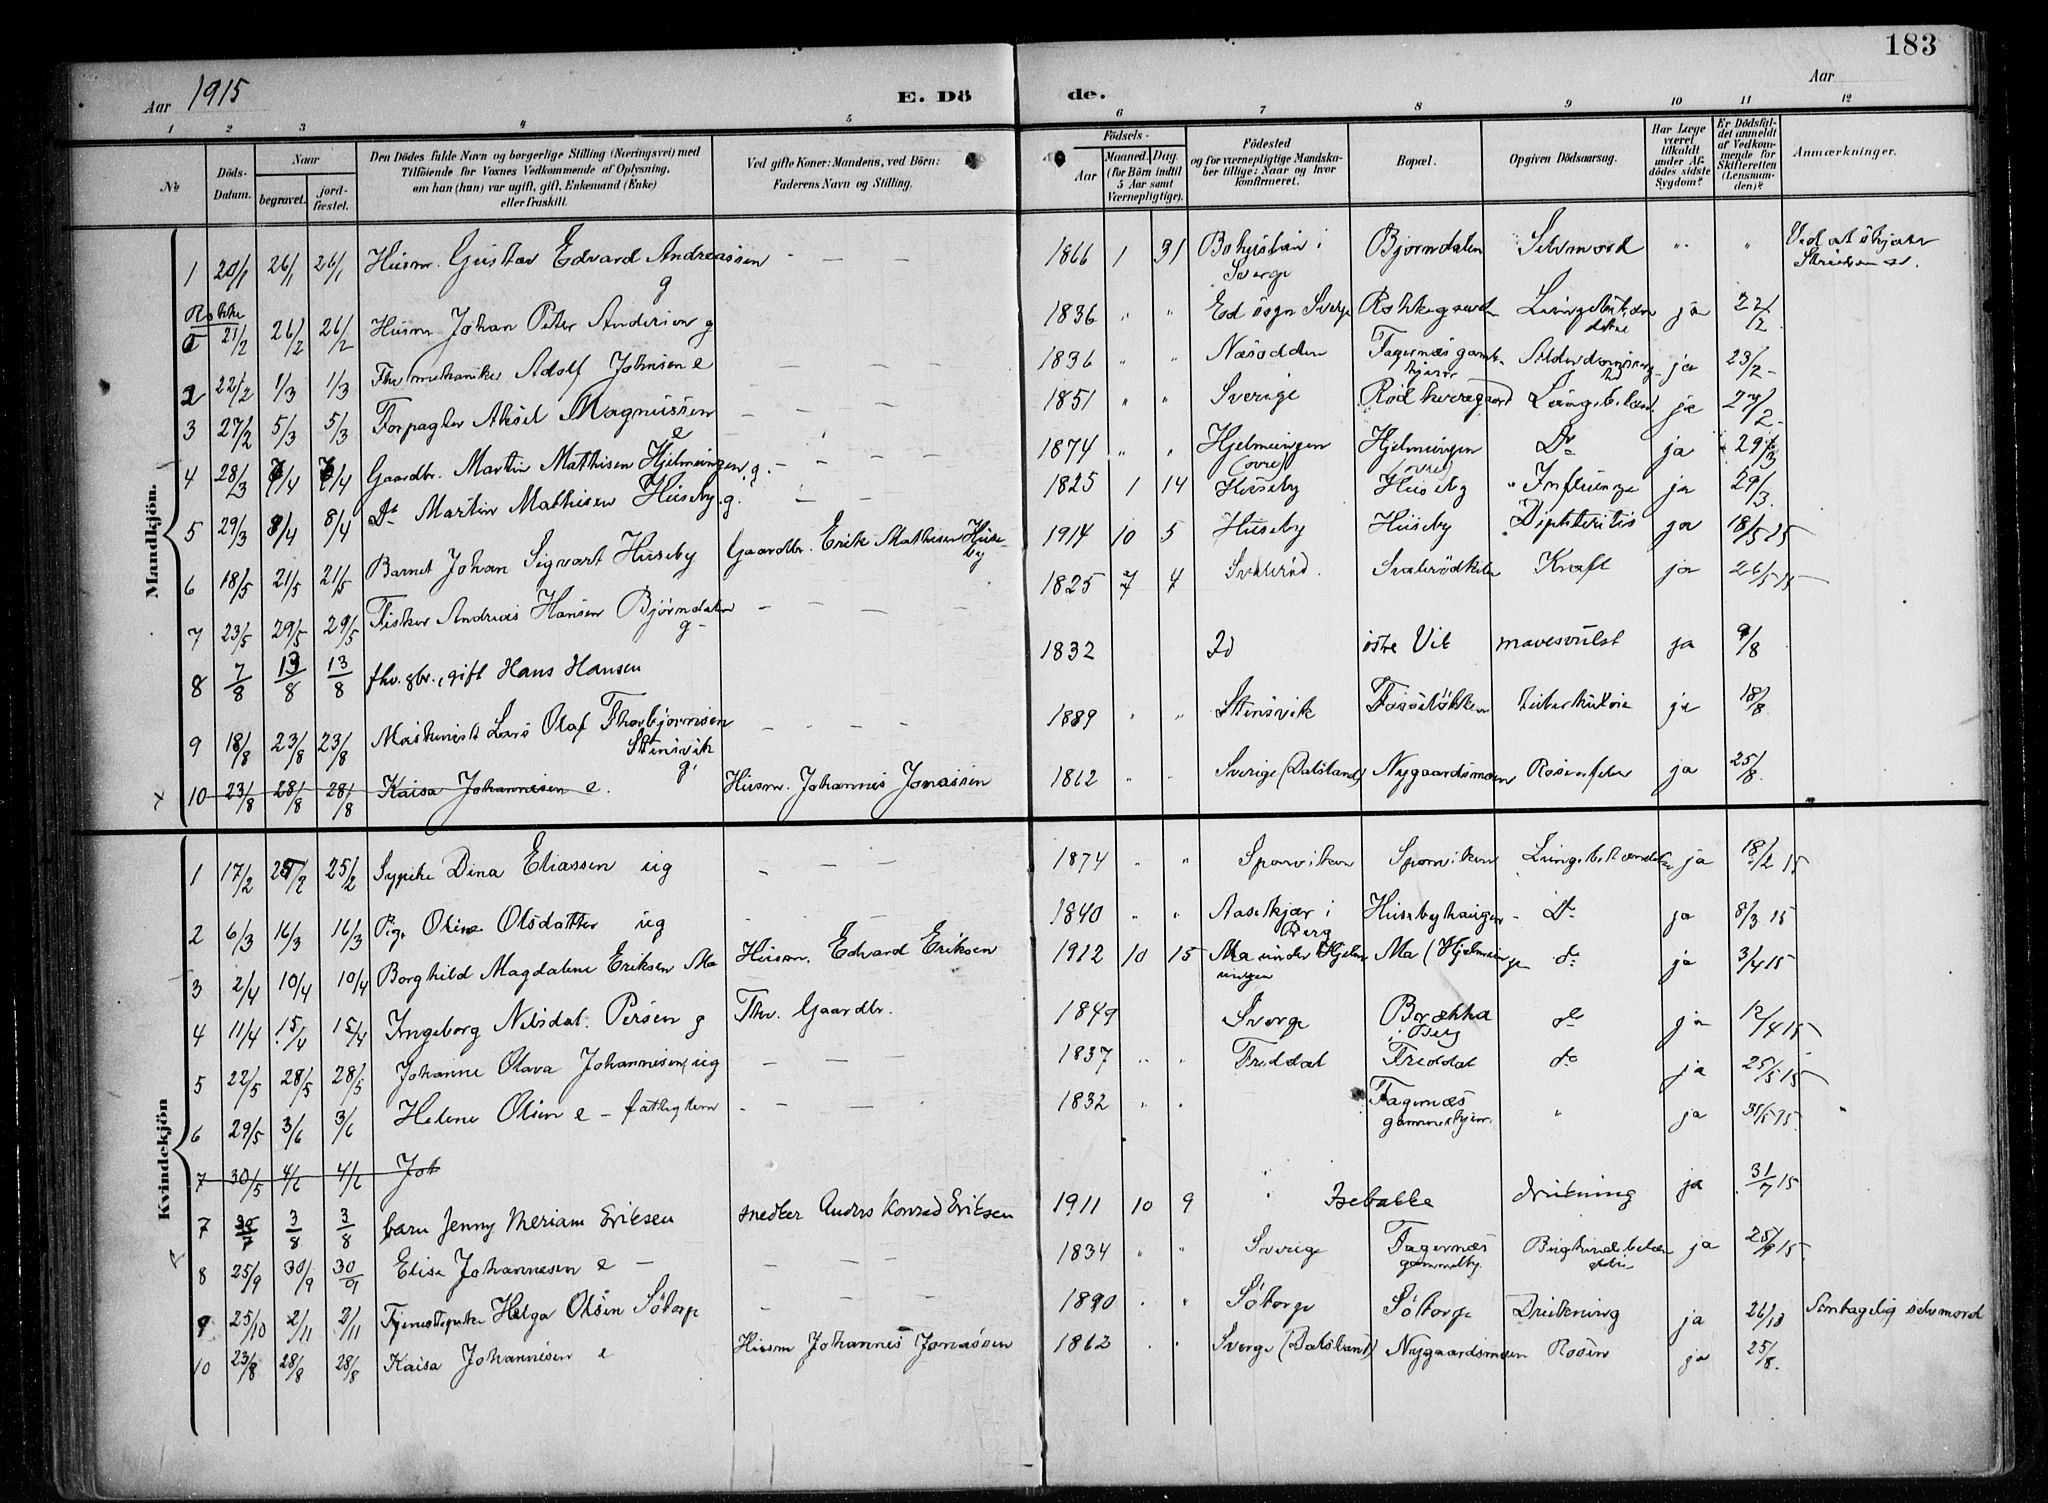 183
Aar 1915
E. Dö
de.
Aar
1 2 3 4 5 6 7 8 9 10 11 12
No
Döds-Datum.
Naar
begravet.
jord-fæstet.
Den Dödes fulde Navn og borgerlige Stilling (Næringsvei) med
Tilföiende for Voxnes Vedkommende af Oplysning,
om han (hun) var ugift, gift, Enkemand (Enke)
eller fraskilt.
Ved gifte Koner: Mandens, ved Börn:
Faderens Navn og Stilling.
Födsels-
Aar
Maaned. Dag.
(for Börn indtil
5 Aar samt
Værnepligtige).
Födested
og for værnepligtige Mandska-
ber tillige: Naar og hvor
konfirmeret.
Bopæl.
Opgiven Dödsaarsag.
Har Læge
været
tilkaldt
under Af-
dödes sidste
Sygdom?
Er Dödsfal-
det anmeldt
af Vedkom-
mende for
Skifteretten
(Lensman-
den)?
Anmærkninger.
Mandkjön.
1 20/1 26/1 26/1 Husm. Gustav Edvard Andreassen g - — — 1866 1 31 Bohuslän i Sverge Bjørndalen Selvmord " " Ved at skjære
Rokke
21/2 26/2 26/2 Husm. Johan Peter Andersen g 1836 " " Ed sogn Sverge Rokkegaarden ja 22/2
2 22/2 1/3 1/3 Fhv mekaniker Adolf Johnsen e — — — 1836 " " Næsodden Fagernæs gamle hjem ja 23/2
3 27/2 5/3 5/3 Forpagter Aksel Magnussen e — — — 1851 " " Sverige Lungebetænd. ja 27/2
4 28/3 7/4 7/4 Gaardbr. Martin Mathisen Hjelmungen g. - — — — 1874 " " Hjelmungen (øvre) Hjelmungen (øvre) Do ja 29/3
5 29/3 8/4 8/4 Do Martin Mathisen Huseby g. — — 1825 1 14 Huseby Huseby Influenza ja 29/3
6 18/5 21/5 21/5 Barnet Johan Sigvart Huseby Gaardbr. Erik Mathisen Huseby 1914 10 5 Huseby Huseby Diphteritis ja 18/5 15
7 23/5 29/5 29/5 Fisker Andreas Hansen Bjørndalen g - — — — 1825 7 4 Svalerød. Svalerødkilen Kræft ja 26/5 15
8 7/8 13/8 13/8 fhv. gbr., gift Hans Hansen 1832 Id østre Vik mavesvulst ja 9/8
9 18/8 23/8 23/8 Maskinist Lars Olaf Thorbjørnsen Stensvik g. — — — — 1889 " " Stensvik Tuberkulose ja 18/8
x 10 23/8 28/8 28/8 Kaisa Johannesen e. Husm. Johannes Jonassen 1862 " " Sverige (Dalsland) Nygaardsmosen Rosenfeber ja 25/8.
Kvindekjön
1 17/2 25/2 25/2 Sypike Dina Eliassen ug - — — 1874 " " Sponviken Sponviken Lungebetændelse ja 18/2 15
2 6/3 16/3 16/3 Pige Oline Olsdatter ug - — — — 1840 " " Aasekjær i Berg Husebyhaugen - Do ja 8/3 15
3 2/4 10/4 10/4 Borghild Magdalene Eriksen Ma Husm. Edvard Eriksen 1912 10 15 Ma under Hjelmungen Ma (Hjelmungen do ja 3/4 15
4 11/4 15/4 15/4 Ingeborg Nilsdat. Persen g Fhv. Gaardbr. 1849 Sverge Brække i Berg do ja 12/4 15
5 22/5 28/5 28/5 Johanne Olava Johannesen, ug — — — 1837 " " Freddal Freddal do ja 25/5 15
6 29/5 3/6 3/6 Helene Olsen e - fattiglem - — — 1832 " " Fagernæs gammelhjem. " ja 31/5 15.
7 30/5 4/6 4/6 Joh
7 30/7 3/8 3/8 barn Jenny Meriam Eriksen snedker Anders Konrad Eriksen 1911 10 9 " Isebakke drukning ja 31/7 15
8 25/9 30/9 30/9 Elise Johannesen e — — — — 1834 " " Sverige Fagernæs gammelhj. ja 25/9 15.
9 25/10 2/11 2/11 Tjenestepike Helga Olsen Søtorp — — — 1890 " " Søtorp Søtorp Drukning ja 26/10 Antagelig selvmord
10 23/8 28/8 28/8 Kaisa Johannesen e Husm Johannes Jonassen 1862 " " Sverge (Dalsland) Nygaardsmosen Rosen ja 25/8.